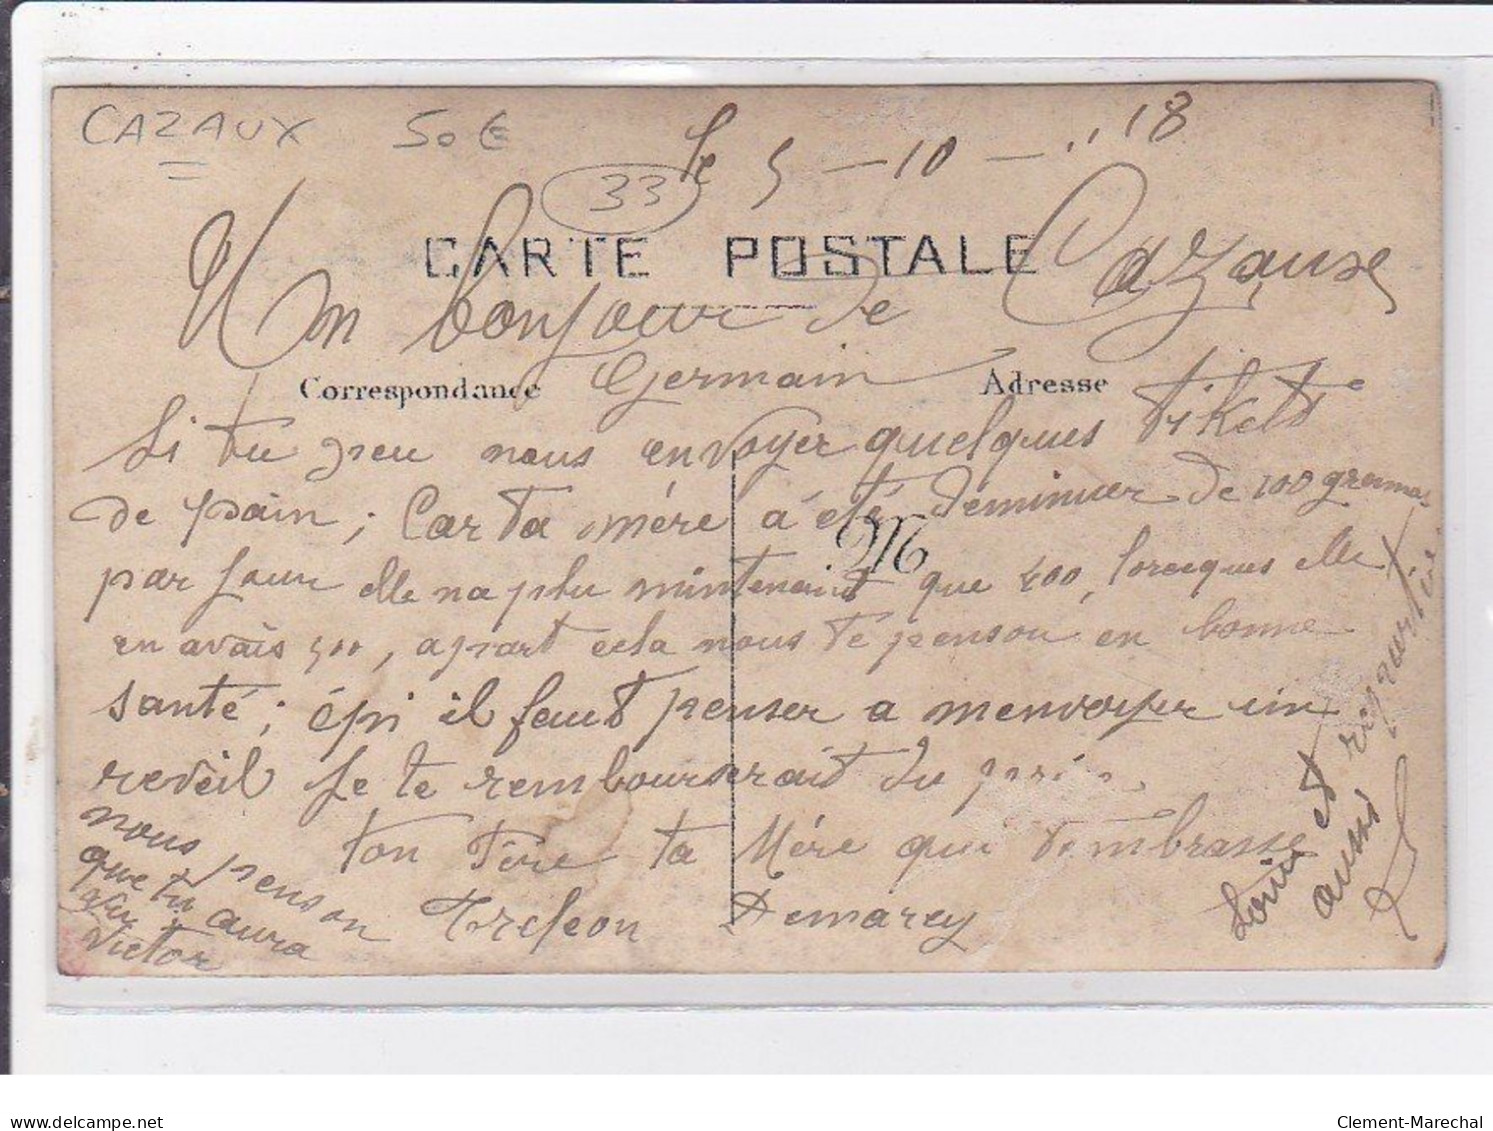 CAZAUX 50€
33
le 5 - 10 - "18
CARTE POSTALE
Un bonjour de Cazaux
Correspondance
Germain
Adresse
Si tu peu nous envoyer quelques tikets
de pain ; Car ta mére a été déminuer de 100 grammes
par jour elle na plu mintenant que 400, lorceques elle
en avais 500, apart cela nous te penson en bonne
santé ; épi il faut penser a menvoyer un
reveil je te rembourserait du prix
ton Père ta Mère qui tembrasse
Demarcy
nous penson
que tu aura
vu
Victor
Louis et
aussi
M
delcampe.net
Clement-Marechal